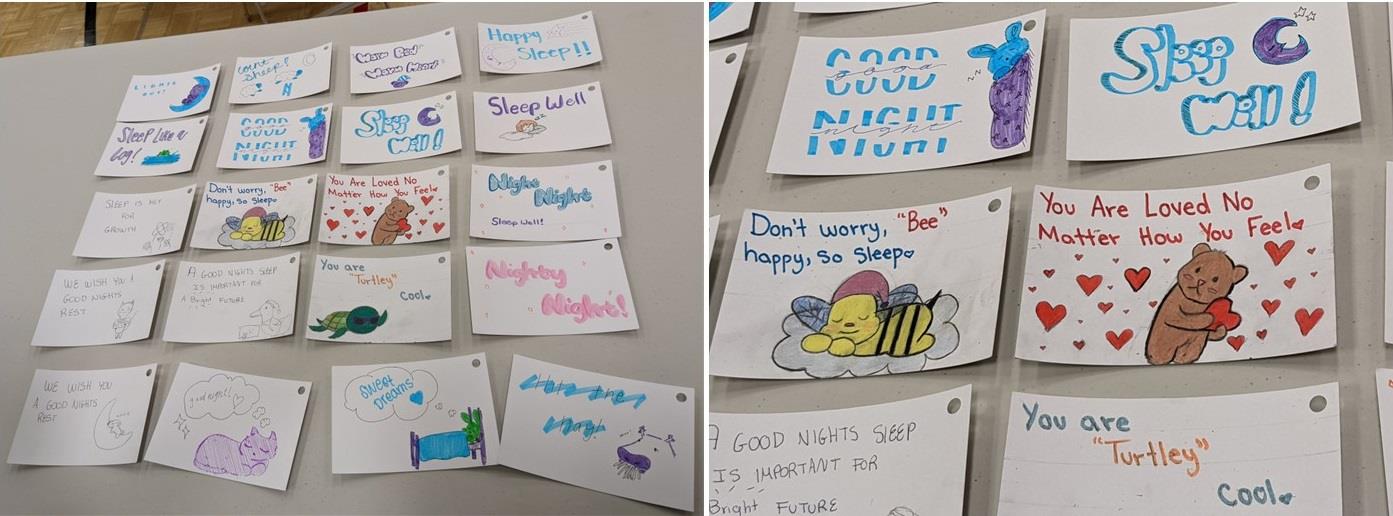 LIGHTS
OUT!
Count
Sheep!
"Warm Bed"
"Warm Heart"
Happy
Sleep!!
Sleep Like a
Log!
GOOD
good
NIGHT
night
Sleep
Well!
Sleep Well
SLEEP IS KEY
FOR
GROWTH
Don't worry, "Bee"
happy, so Sleep
You Are Loved No
Matter How You Feel
Night
Night
Sleep Well!
WE WISH YOU A
GOOD NIGHTS
REST
A GOOD NIGHTS SLEEP
IS IMPORTANT FOR
A Bright FUTURE
You are
"Turtley"
Cool
Nighty
Night!
WE WISH YOU
A GOOD NIGHTS
REST
good night!
Sweet
Dreams
Hit the
Hay!
GOOD
good
NIGHT
night
Sleep
Well!
Don't worry, "Bee"
happy, so Sleep
You Are Loved No
Matter How You Feel
A GOOD NIGHTS SLEEP
IS IMPORTANT FOR
Bright FUTURE
You are
"Turtley"
Cool